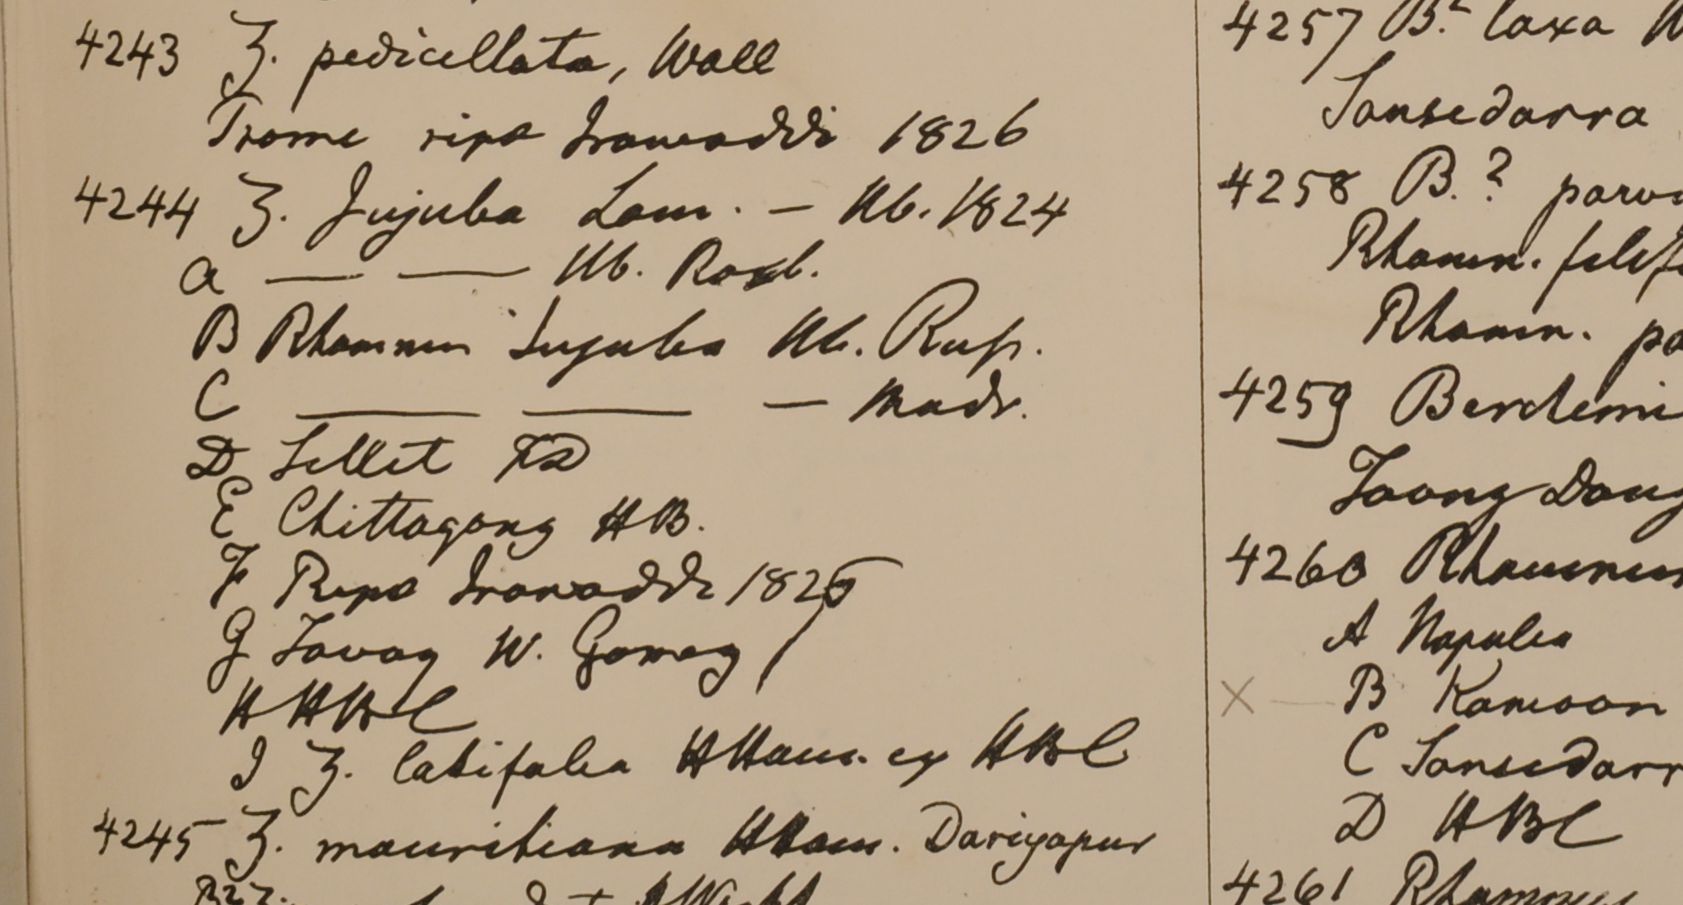 4243 Z. pedicellata, Wall
Prome ripa Irawaddi 1826
4244 Z. Jujuba Lam. — Hb. 1824
a — — Hb. Roxb.
B Rhamnus Jujuba Hb. Russ.
C — — — Madr.
D Sillet FD
E Chittagong HB.
F Ripa Irawaddi 1826
G Tavoy W. Gomez
H HBC
I Z. latifolia HHam. ex HBC
4245 Z. mauritiana HHam. Dariyapur
B Z. Wight
4257 B.? laxa W
Sansedarra
4258 B.? parvi
Rhamn. filif
Rhamn. pa
4259 Berchemi
Taong Dong
4260 Rhamnus
A Napalia
X — B Kamoon
C Sansedarr
D HBC
4261 Rhamnus